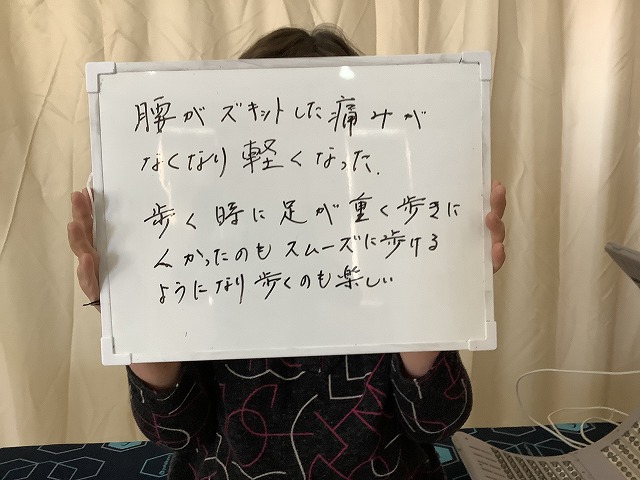 腰がズキットした痛みが
なくなり軽くなった.
歩く時に足が重く歩きに
くかったのもスムーズに歩ける
ようになり歩くのも楽しい